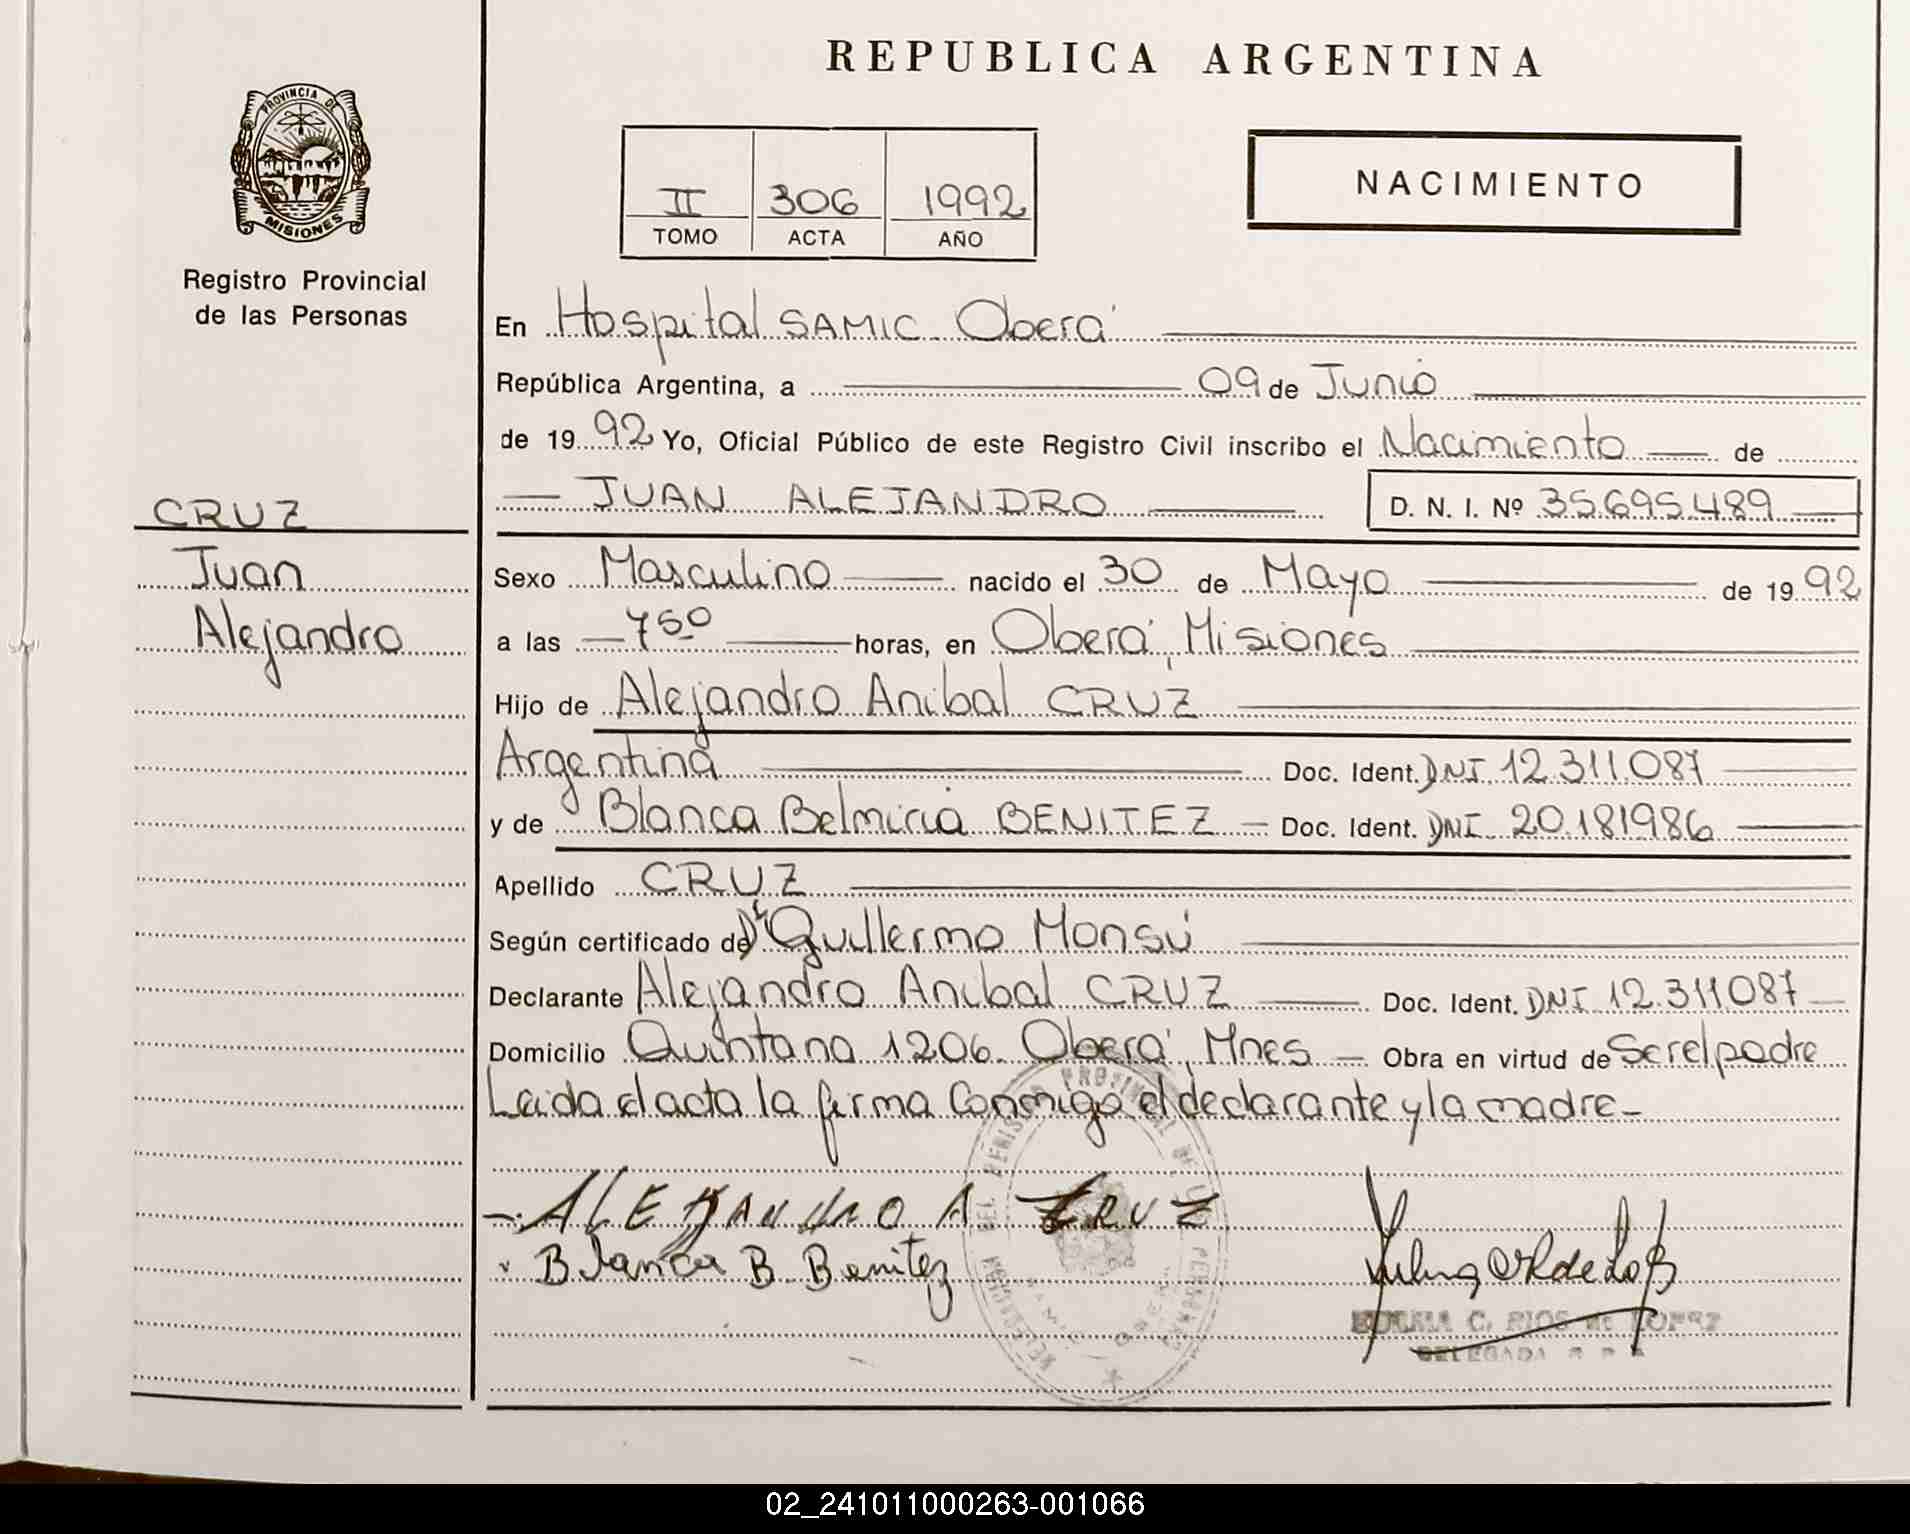 REPUBLICA ARGENTINA
PROVINCIA DE
MISIONES
Registro Provincial
de las Personas
II 306 1992
TOMO ACTA AÑO
NACIMIENTO
CRUZ
Juan
Alejandro
En Hospital SAMIC Oberá
República Argentina, a 09 de Junio
de 1992 Yo, Oficial Público de este Registro Civil inscribo el Nacimiento de
JUAN ALEJANDRO D. N. I. Nº 35.695.489
Sexo Masculino nacido el 30 de Mayo de 1992
a las 7 50 horas, en Oberá, Misiones
Hijo de Alejandro Anibal CRUZ
Argentina Doc. Ident. DNI 12.311.087
y de Blanca Belmiria BENITEZ Doc. Ident. DNI 20.181986
Apellido CRUZ
Según certificado de Dr Guillermo Monsú
Declarante Alejandro Anibal CRUZ Doc. Ident. DNI 12.311.087
Domicilio Quintana 1206. Oberá, Mnes Obra en virtud de Ser el padre
Leida el acta la firma Conmigo el declarante y la madre
ALEJANDRO A CRUZ
Blanca B. Benitez
C. RIOS de LOPEZ
DELEGADA R P
02_241011000263-001066